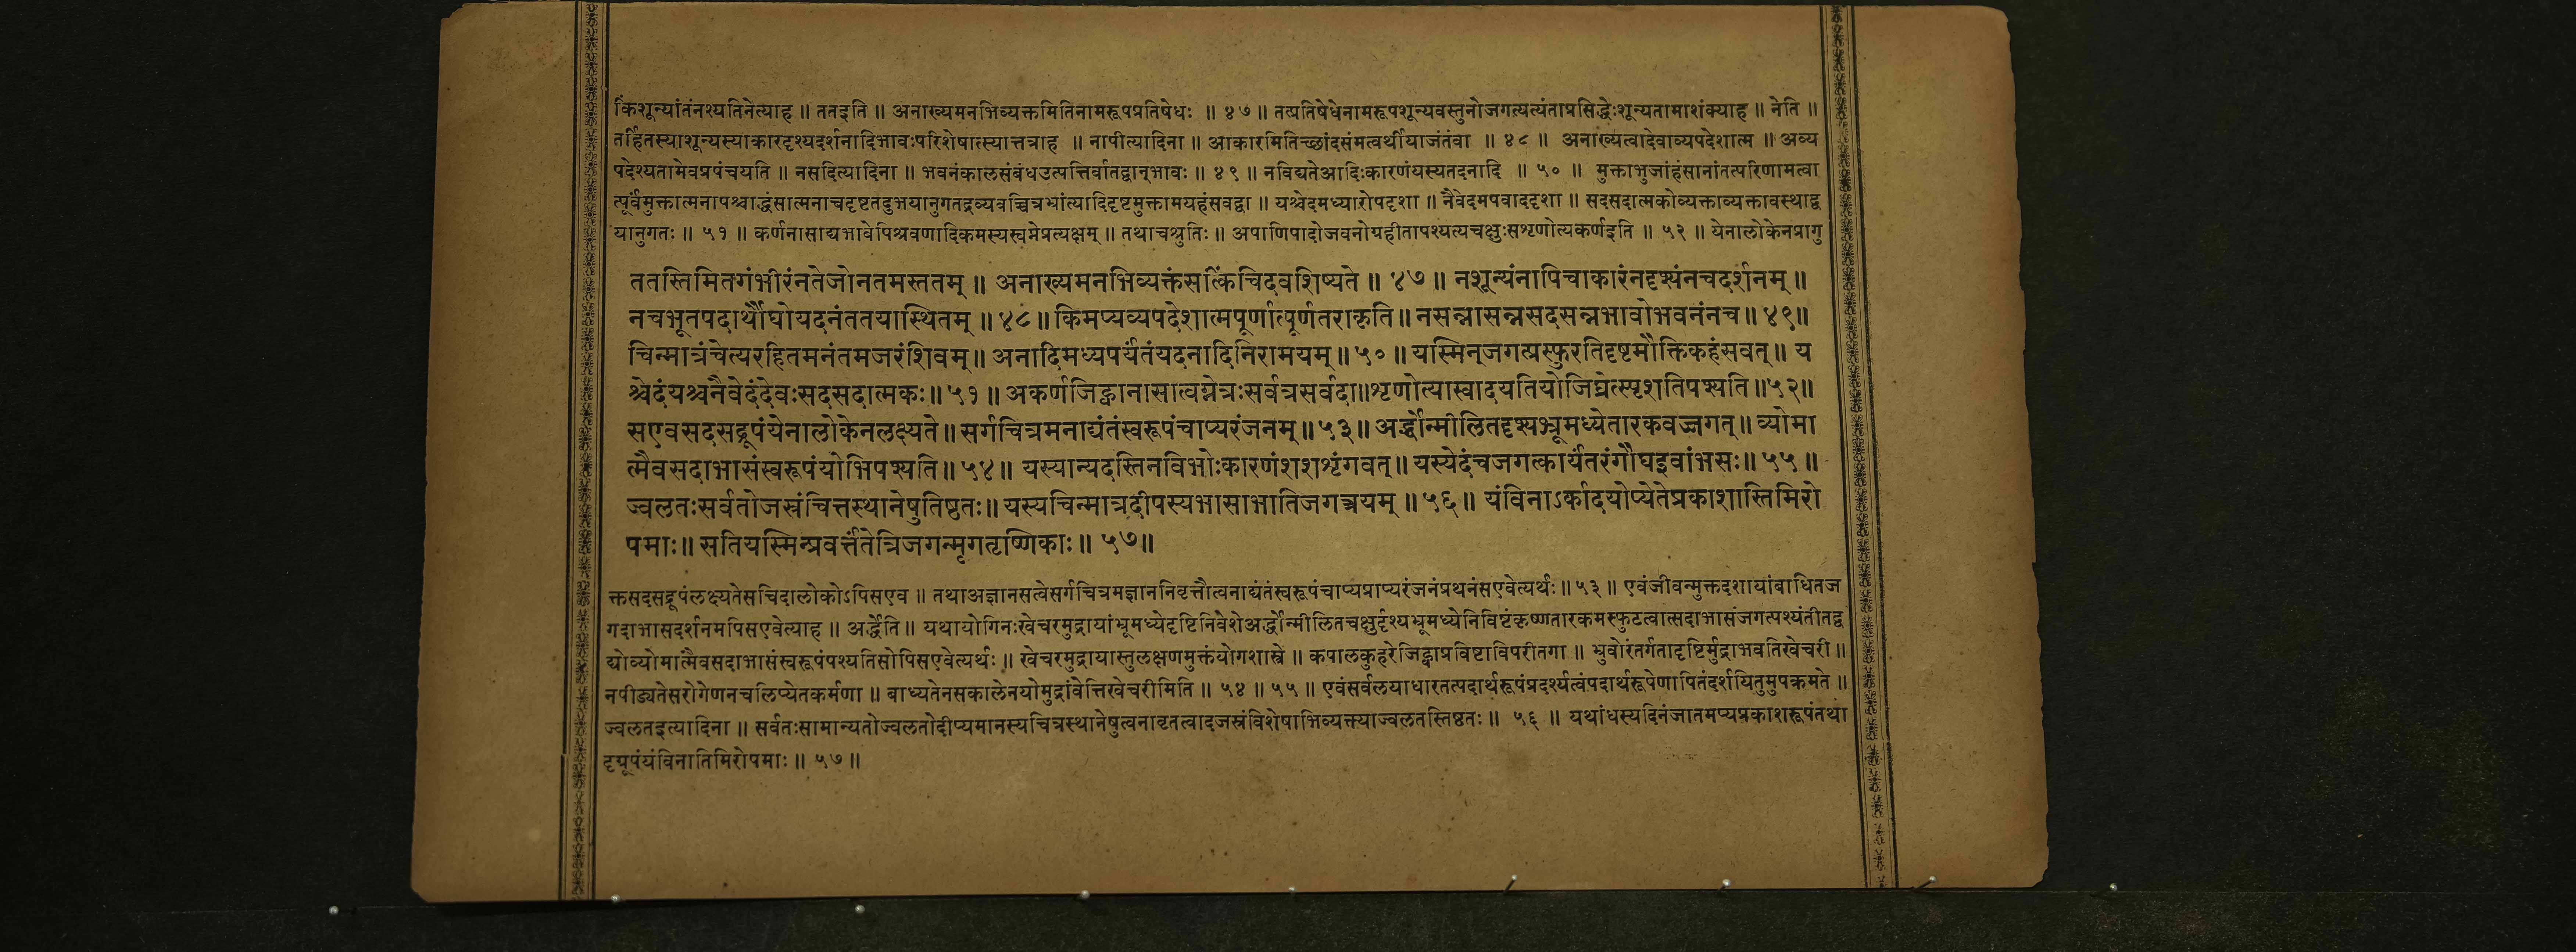 किंशून्यांतंनश्यतिनेत्याह ॥ ततइति ॥ अनाख्यमनभिव्यक्तमितिनामरूपप्रतिषेधः ॥ ४७ ॥ तत्प्रतिषेधेनामरूपशून्यवस्तुनोजगत्यत्यंताप्रसिद्धेःशून्यतामाशंक्याह ॥ नेति ॥
तर्हितस्याशून्यस्याकारदृश्यदर्शनादिभावःपरिशेषात्स्यात्तत्राह ॥ नापीत्यादिना ॥ आकारमितिच्छांदसंमत्वर्थीयाजंतंवा ॥ ४८ ॥ अनाख्यत्वादेवाव्यपदेशात्म ॥ अव्य
पदेश्यतामेवप्रपंचयति ॥ नसदित्यादिना ॥ भवनंकालसंबंधउत्पत्तिर्वातद्वान्भावः ॥ ४९ ॥ नविद्यतेआदिःकारणंयस्यतदनादि ॥ ५० ॥ मुक्ताभुजांहंसानांतत्परिणामत्वा
त्पूर्वंमुक्तात्मनापश्चाद्धंसात्मनाचदृष्टतदुभयानुगतद्रव्यवच्चित्रभ्रांत्यादिदृष्टमुक्तामयहंसवद्वा ॥ यश्चेदमध्यारोपदृशा ॥ नैवेदमपवाददृशा ॥ सदसदात्मकोव्यक्ताव्यक्तावस्थाद्व
यानुगतः ॥ ५१ ॥ कर्णनासाद्यभावेपिश्रवणादिकमस्यस्वमेप्रत्यक्षम् ॥ तथाचश्रुतिः ॥ अपाणिपादोजवनोग्रहीतापश्यत्यचक्षुःसशृणोत्यकर्णइति ॥ ५२ ॥ येनालोकेनप्रागु
ततस्तिमितगंभीरंनतेजोनतमस्ततम् ॥ अनाख्यमनभिव्यक्तंसत्किंचिदवशिष्यते ॥ ४७ ॥ नशून्यंनापिचाकारंनदृश्यंनचदर्शनम् ॥
नचभूतपदार्थौघोयदनंततयास्थितम् ॥ ४८ ॥ किमप्यव्यपदेशात्मपूर्णात्पूर्णतराकृति ॥ नसन्नासन्नसदसन्नभावोभवनंनच ॥ ४९ ॥
चिन्मात्रंचेत्यरहितमनंतमजरंशिवम् ॥ अनादिमध्यपर्यंतंयदनादिनिरामयम् ॥ ५० ॥ यस्मिन्जगत्प्रस्फुरतिदृष्टमौक्तिकहंसवत् ॥ य
श्चेदंयश्चनैवेदंदेवःसदसदात्मकः ॥ ५१ ॥ अकर्णजिह्वानासात्वग्नेत्रःसर्वत्रसर्वदा ॥ शृणोत्यास्वादयतियोजिघ्रेत्स्पृशतिपश्यति ॥ ५२ ॥
सएवसदसद्रूपंयेनालोकेनलक्ष्यते ॥ सर्गचित्रमनाद्यंतंस्वरूपंचाप्यरंजनम् ॥ ५३ ॥ अर्द्धोन्मीलितदृश्यभ्रूमध्येतारकवज्जगत् ॥ व्योमा
त्मैवसदाभासंस्वरूपंयोभिपश्यति ॥ ५४ ॥ यस्यान्यदस्तिनविभोःकारणंशशशृंगवत् ॥ यस्येदंचजगत्कार्यंतरंगौघइवांभसः ॥ ५५ ॥
ज्वलतःसर्वतोजस्रंचित्तस्थानेषुतिष्ठतः ॥ यस्यचिन्मात्रदीपस्यभासाभातिजगत्रयम् ॥ ५६ ॥ यंविनाऽर्कादयोप्येतेप्रकाशास्तिमिरो
पमाः ॥ सतियस्मिन्प्रवर्त्तंतेत्रिजगन्मृगतृष्णिकाः ॥ ५७ ॥
क्तसदसद्रूपंलक्ष्यतेसचिदालोकोऽपिसएव ॥ तथाअज्ञानसत्वेसर्गचित्रमज्ञाननिवृत्तौत्वनाद्यंतंस्वरूपंचाप्यप्राप्यरंजनंप्रथनंसएवेत्यर्थः ॥ ५३ ॥ एवंजीवन्मुक्तदशायांबाधितज
गदाभासदर्शनमपिसएवेत्याह ॥ अर्द्धेति ॥ यथायोगिनःखेचरमुद्रायांभ्रूमध्येदृष्टिनिवेशेअर्द्धोन्मीलितचक्षुर्दृश्यभ्रूमध्येनिविष्टंकृष्णतारकमस्फुटत्वात्सदाभासंजगत्पश्यंतीतद्व
द्योव्योमात्मैवसदाभासंस्वरूपंपश्यतिसोपिसएवेत्यर्थः ॥ खेचरमुद्रायास्तुलक्षणमुक्तंयोगशास्त्रे ॥ कपालकुहरेजिह्वाप्रविष्टाविपरीतगा ॥ भ्रुवोरंतर्गतादृष्टिर्मुद्राभवतिखेचरी ॥
नपीड्यतेसरोगेणनचलिप्येतकर्मणा ॥ बाध्यतेनसकालेनयोमुद्रांवेत्तिखेचरीमिति ॥ ५४ ॥ ५५ ॥ एवंसर्वलयाधारतत्पदार्थरूपंप्रदर्श्यत्वंपदार्थरूपेणापितंदर्शयितुमुपक्रमते ॥
ज्वलतइत्यादिना ॥ सर्वतःसामान्यतोज्वलतोदीप्यमानस्यचित्रस्थानेषुत्वनावृतत्वादजस्रंविशेषाभिव्यक्त्याज्वलतस्तिष्ठतः ॥ ५६ ॥ यथांधस्यदिनंजातमप्यप्रकाशरूपंतथा
दृग्रूपंयंविनातिमिरोपमाः ॥ ५७ ॥